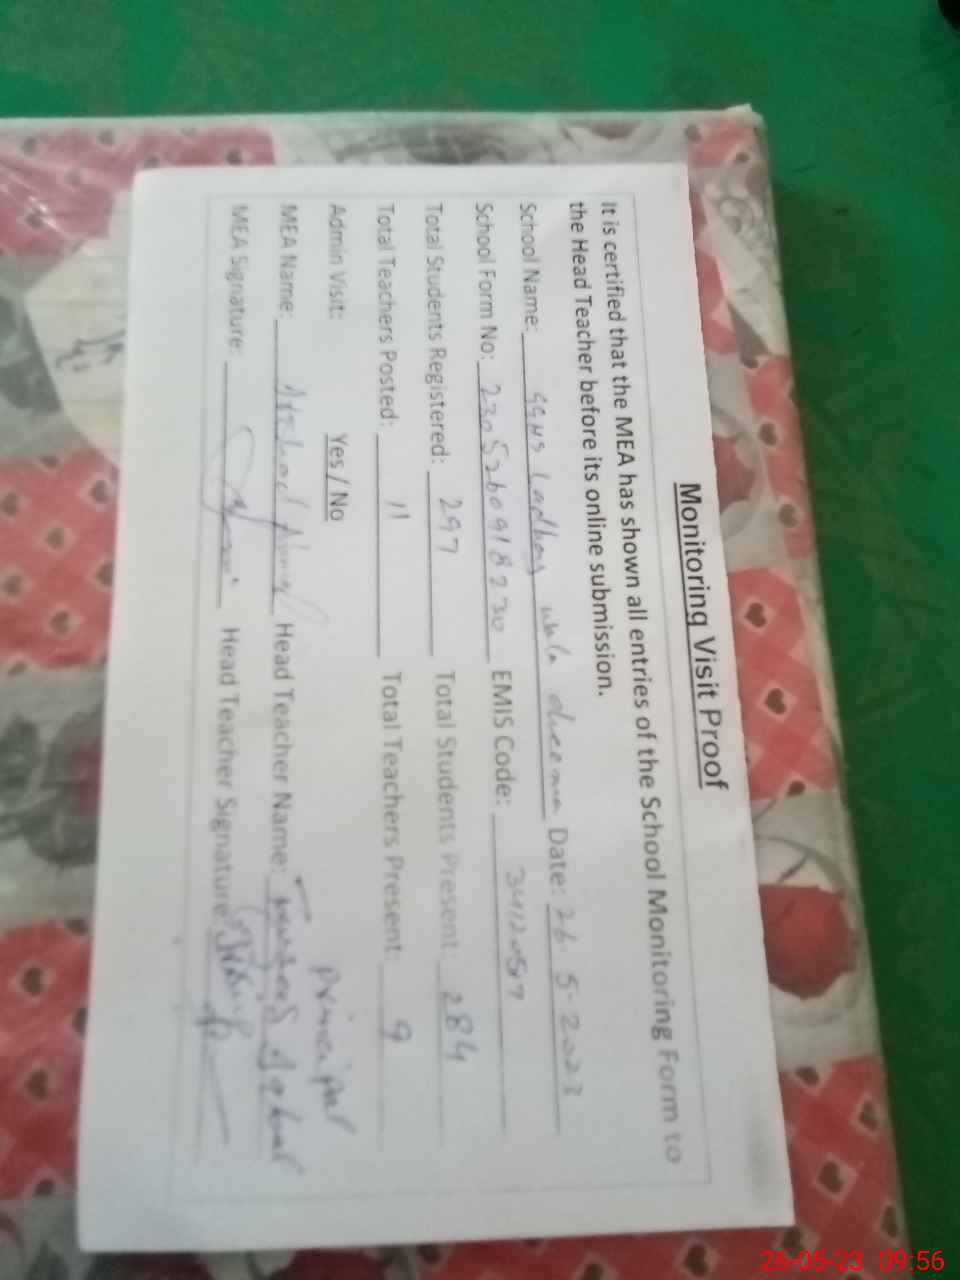 Monitoring Visit Proof
It is certified that the MEA has shown all entries of the School Monitoring Form to
the Head Teacher before its online submission.
School Name: GGHS Ladhay wala cheema Date: 26 5-2023
School Form No: 2305260918230 EMIS Code: 34120517
Total Students Registered: 297 Total Students Present: 284
Total Teachers Posted: 11 Total Teachers Present: 9
Admin Visit: Yes / No Principal
MEA Name: Head Teacher Name:
MEA Signature: Head Teacher Signature:
26-05-23 09:56